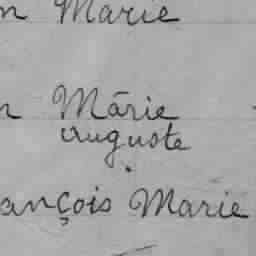 n Marie
n Marie
Auguste
ançois Marie